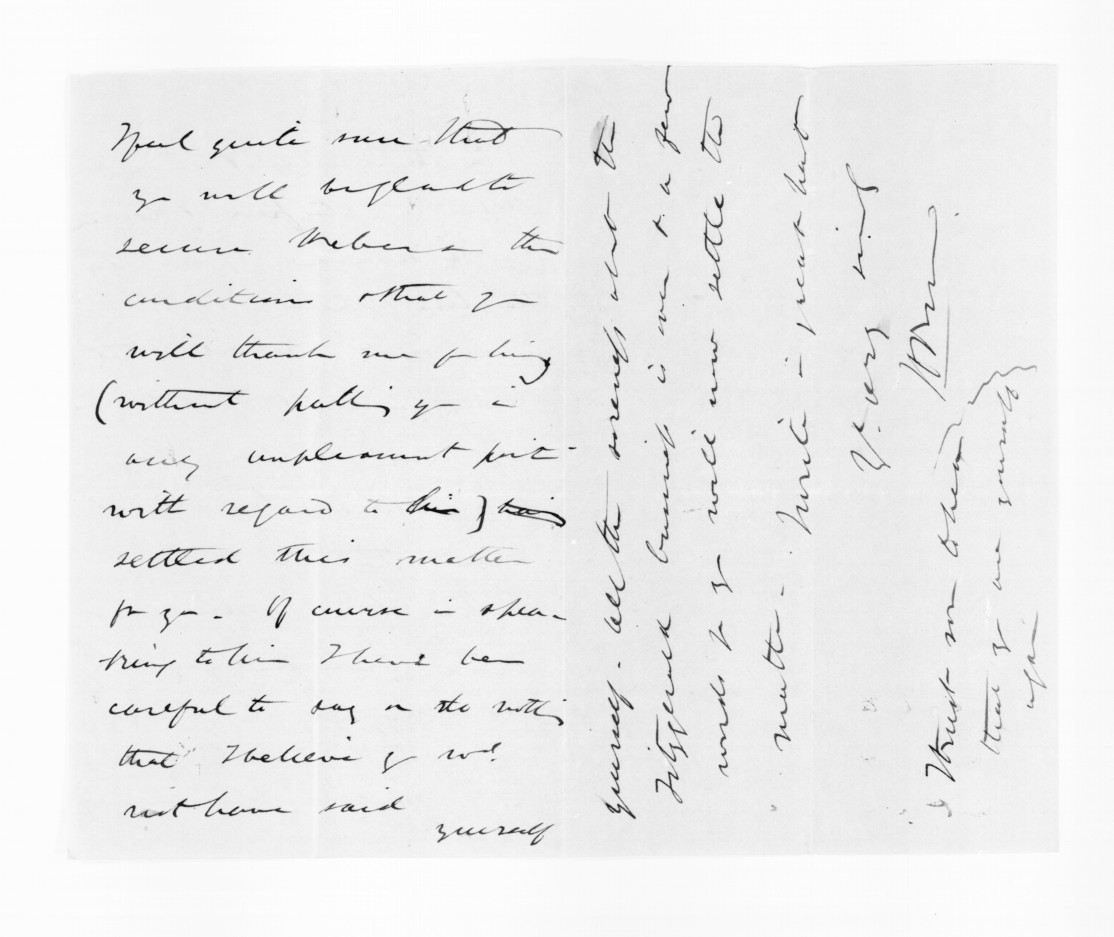 I feel quite sure that
yr will be glad to
secure Webers on the
conditions & that yr
will thank me for having
(without putting yr in
any unpleasant posit-
with regard to him) having
settled this matter
for yr. Of course in spea-
king to him I have been
careful to say or do nothing
that I believe yr wd.
not have said
yourself
yourself. All the soreness abt the
Fitzgerald business is over & a few
words fr yr will now settle the
matter. I write in great haste
Yr. very sincy
I trust soon to hear
that yr are yourself
again